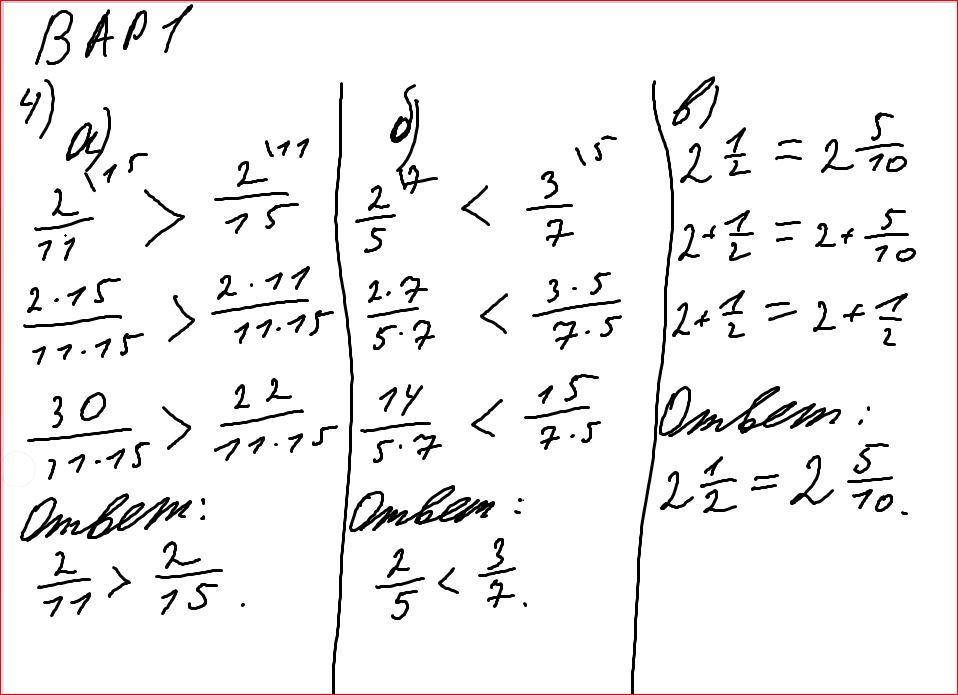 ВАР 1
4)
а)
2/11 \15 > 2/15 \11
2·15/11·15 > 2·11/11·15
30/11·15 > 22/11·15
Ответ:
2/11 > 2/15.
б)
2/5 \7 < 3/7 \5
2·7/5·7 < 3·5/7·5
14/5·7 < 15/7·5
Ответ:
2/5 < 3/7.
в)
2 1/2 = 2 5/10
2+1/2 = 2+5/10
2+1/2 = 2+1/2
Ответ:
2 1/2 = 2 5/10.